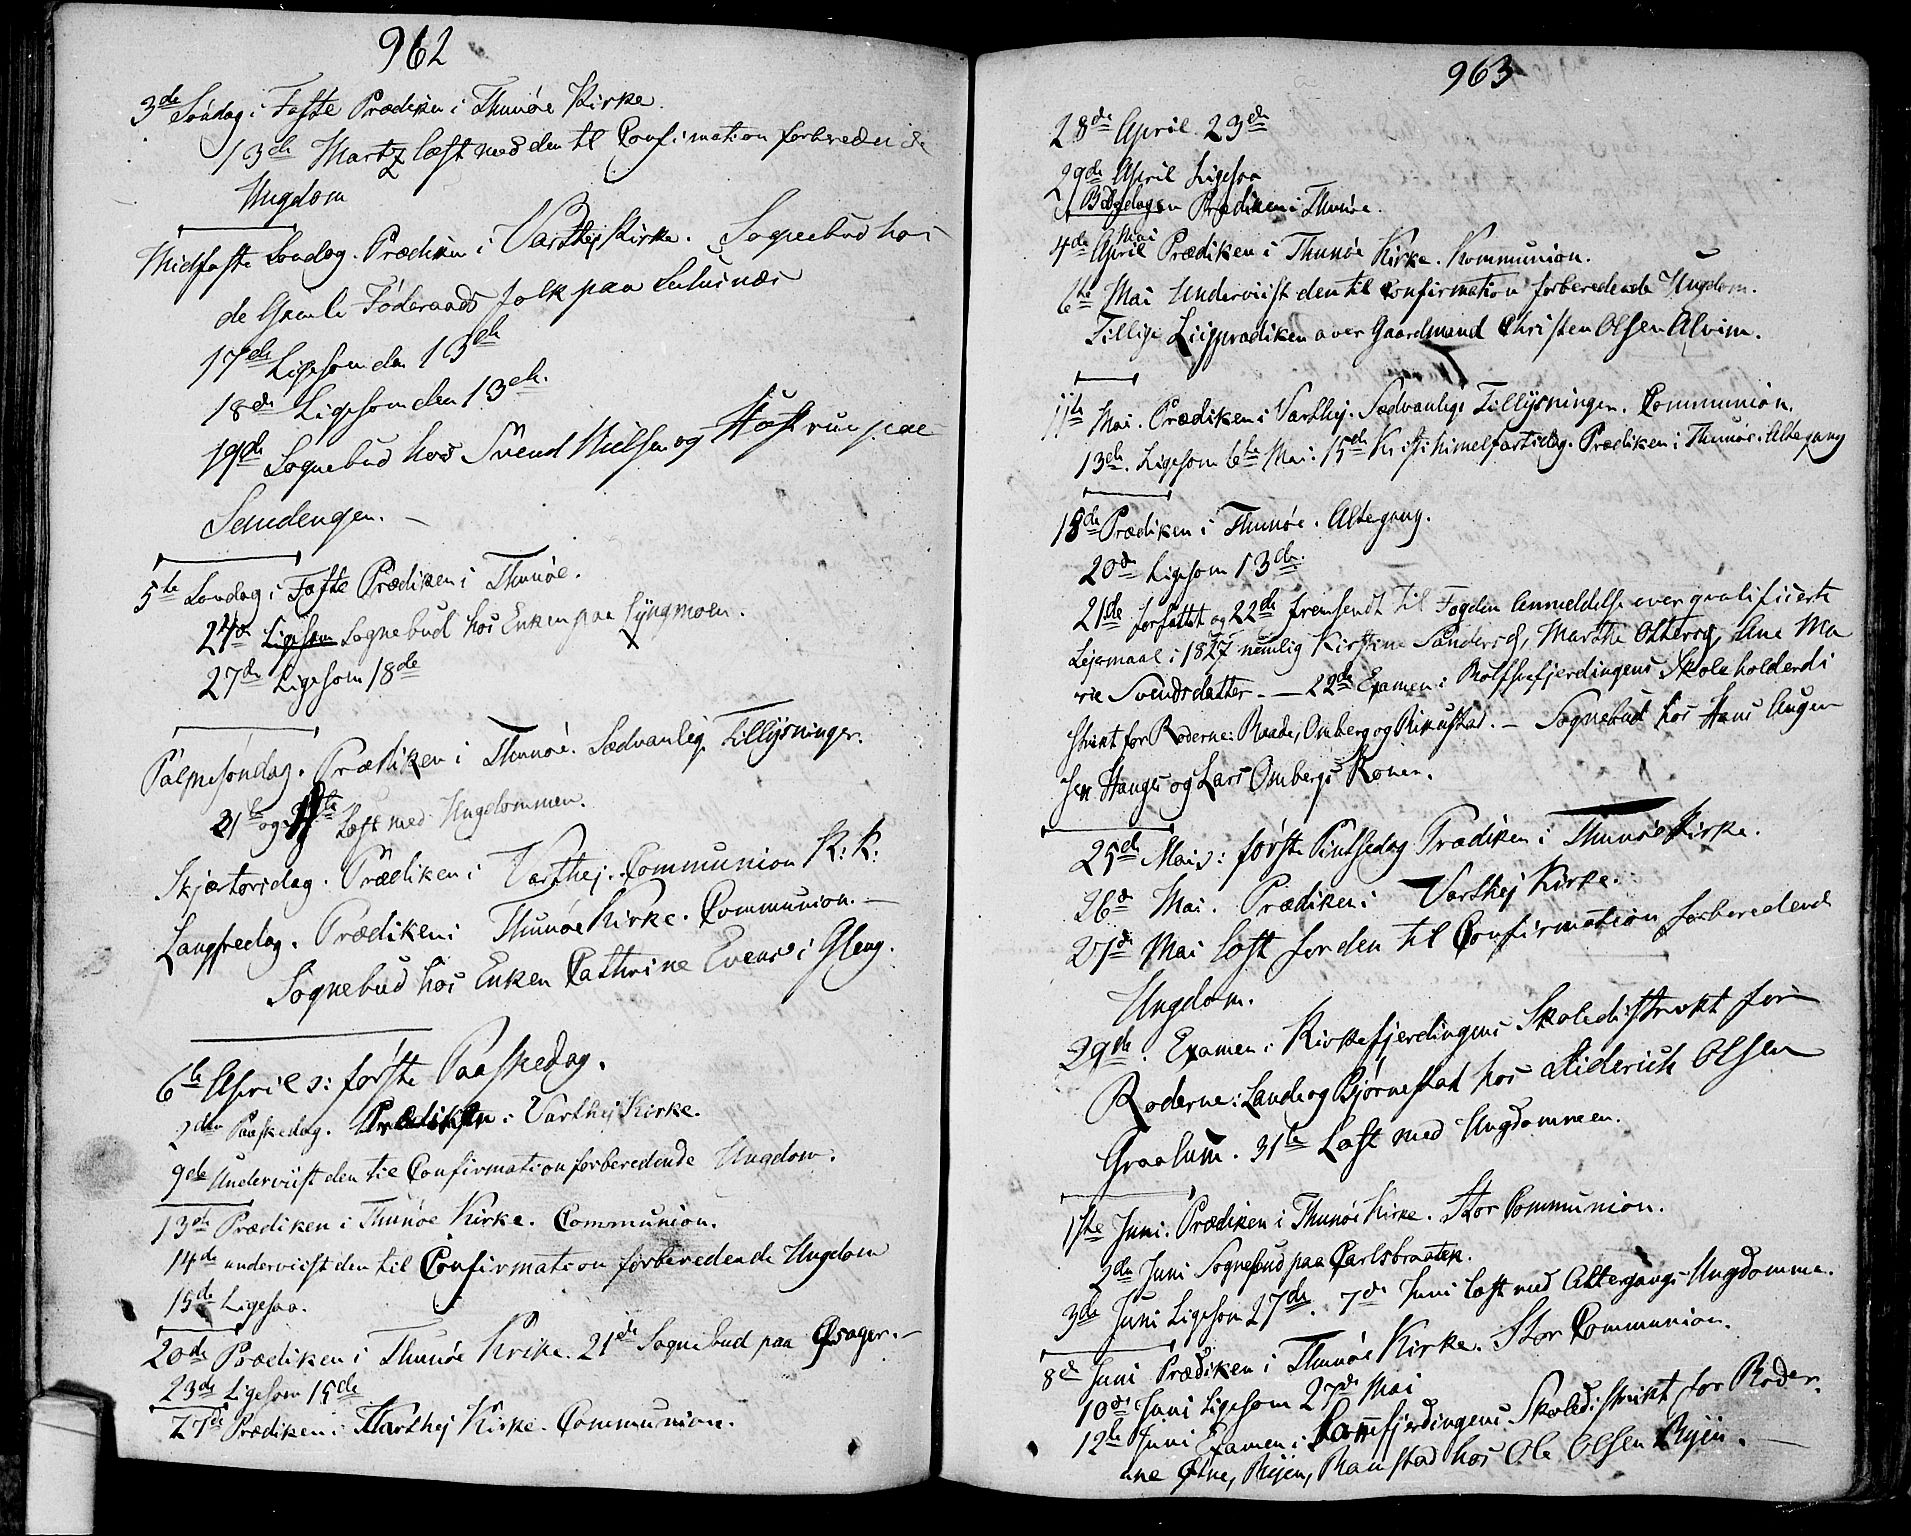 962
3de Søndag i Faste Prædiken i Thunøe Kirke.
13de Martz læst med den til Confirmation forberedende
Ungdom
Midfaste Søndag. Prædiken i Varthej Kirke. Sognebud hos
de Gamle Føderaads folk paa
17de Ligesom den 13de
18de Ligesom den 13de.
19de Sognebud hos Svend Nielsen og Hustrue paa
Sandengen. —
5te Søndag i Faste Prædiken i Thunøe.
24de Ligesom Sognebud hos Enken paa Lyngmoen.
27de Ligesom 18de
Palmesøndag. Prædiken i Thunøe. Sædvanlig Tillysninger.
31te og 1te Læst med Ungdommen.
Skjærtorsdag. Prædiken i Varthej. Communion K: K:
Langfredag. Prædiken i Thunøe Kirke. Communion. —
Sognebud hos Enken Cathrine Evens i Gleng.
6te April ɔ: første Paaskedag.
2den Paaskedag. Prædiken i Varthej Kirke.
9de Underviist den til Confirmation forberedende Ungdom.
13de Prædiken i Thunøe Kirke. Communion.
14de underviist den til Confirmation forberedende Ungdom
15de Ligesaa.
20de Prædiken i Thunøe Kirke. 21de Sognebud paa Øsager. —
23de Ligesom 15de
27de Prædiken i Varthej Kirke. Communion.
963
28de April 23de
29de April Ligesaa
Bededagen Prædiken i Thunøe.
4de April Mai Prædiken i Thunøe Kirke. Kommunion.
6te Mai Underviist den til Confirmation forberedende Ungdom.
Tillige Liigprædiken over Gaardmand Christen Olsen Alvim.
11te Mai. Prædiken i Varthej. Sædvanlige Tillysninger. Communion.
13de. Ligesom 6te Mai: 15de Kristi himelfartsdag. Prædiken i Thunøe. Altergang
18de Prædiken i Thunøe. Altergang.
20de Ligesom 13de.
21de forfattet og 22de fremsendt til Fogden Anmeldelse over qvalificerte
Lejermaal i 1827 nemlig Kirstine Sandersd, Marthe Ottersd, Ane Ma
rie Svendsdatter. — 22de Examen i Rolfsøefjerdingens Skoleholderdi
strikt for Roderne: Raade, Omberg og Rikustad. — Sognebud hos Hans Augen
sen Hauge og Lars Ombergs Koner.
25de Mai ɔ: første Pintsedag Prædiken i Thunøe Kirke.
26de Mai. Prædiken i Varthej Kirke.
27de Mai læst for den til Confirmation forberedende
Ungdom.
29de. Examen i Kirkefjerdingens Skoledistrikt for
Roderne: Lande og Bjørnestad hos Diderich Olsen
Graalum. 31te Læst med Ungdommen.
1ste Juni. Prædiken i Thunøe Kirke. Stor Communion.
2den Juni Sognebud paa Carlsbraaten.
3de Juni Ligesom 27de. 7de Juni læst med Altergangs-Ungdomme.
8de Juni Prædiken i Thunøe Kirke. Stor Communion.
10de Juni Ligesom 27de Mai
12te Juni Examen i Lannefjerdingens Skoledistrikt for Roder
ne Østne, Rejen, Ranstad hos Ole Olsen Byen. —